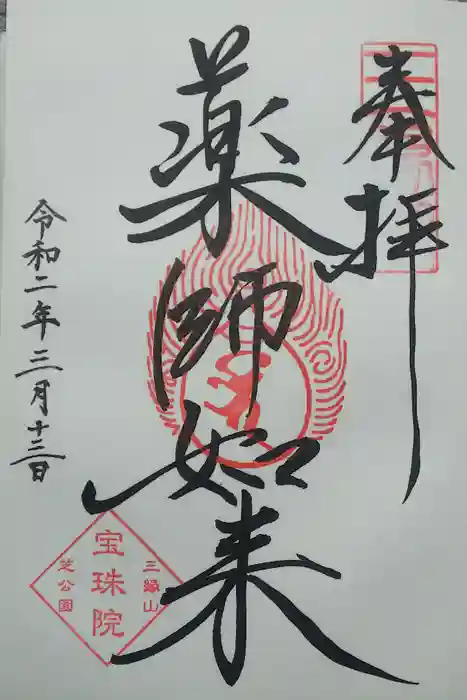 奉拝
薬師如来
令和二年三月十三日
三縁山
宝珠院
芝公園